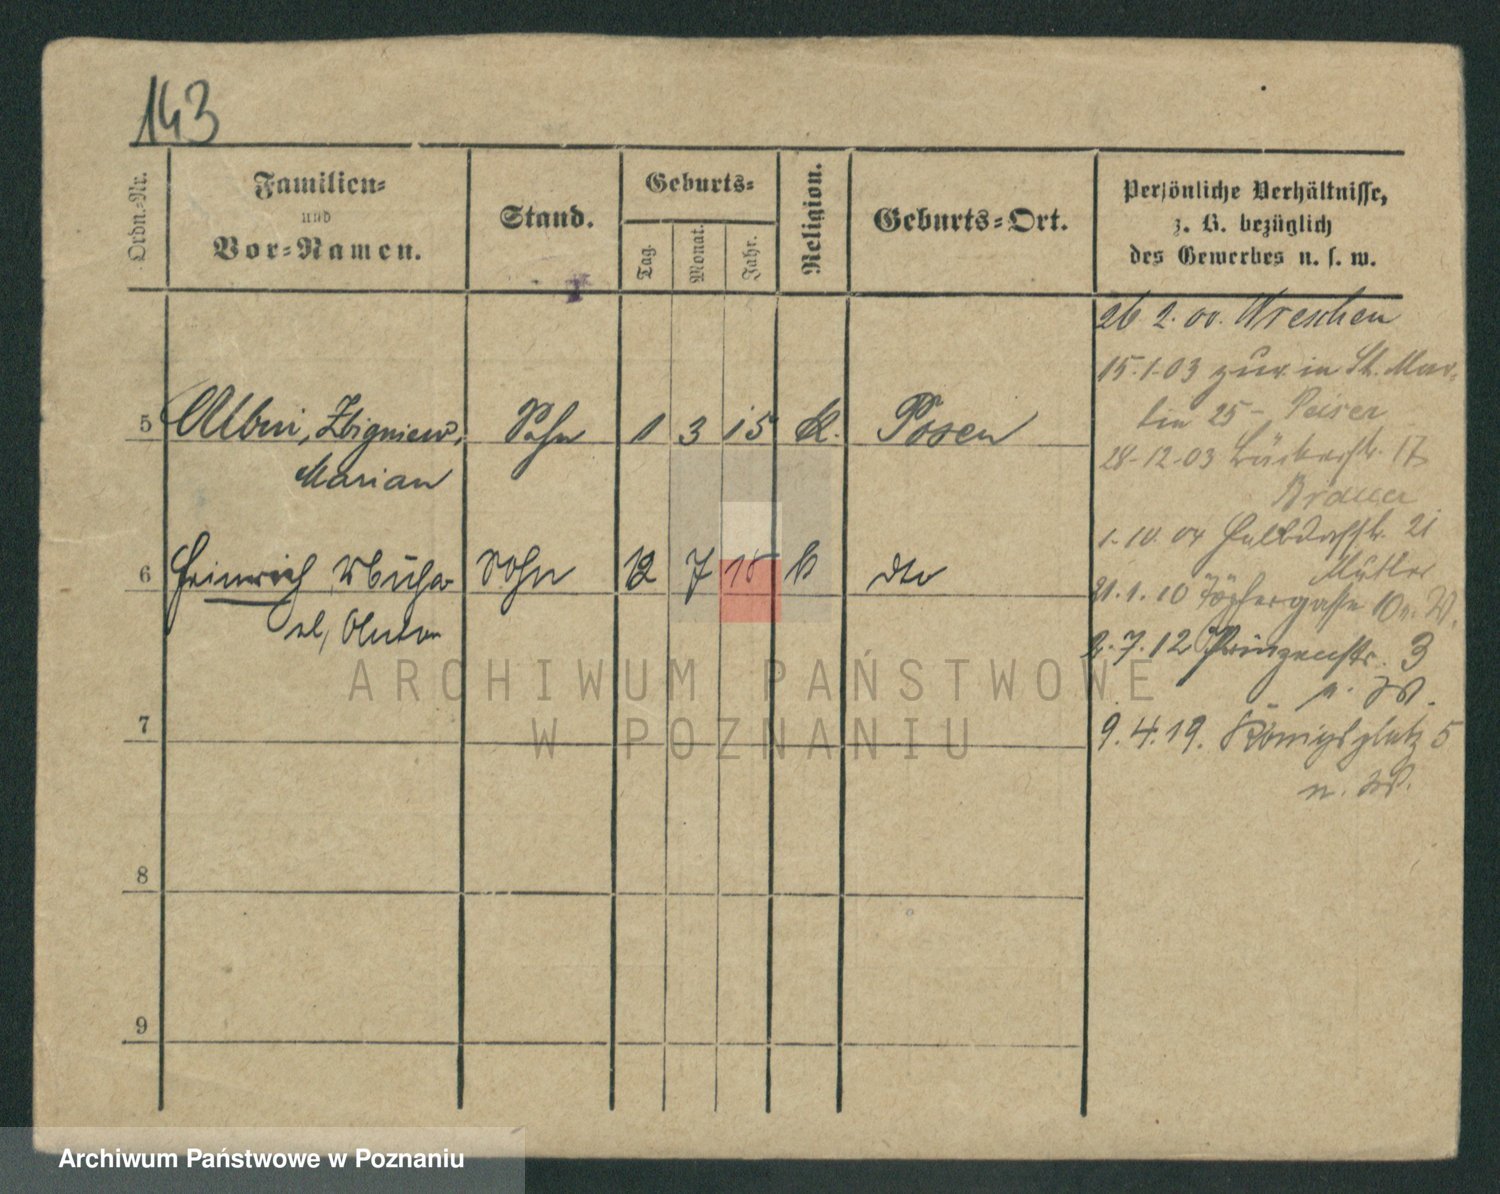 143
Ordn.-Nr.
Familien-
und
Vor-Namen.
Stand.
Geburts-
Tag.
Monat.
Jahr.
Religion.
Geburts-Ort.
Persönliche Verhältnisse,
z. B. bezüglich
des Gewerbes u. s. w.
26.2.00. Wreschen
15.1.03 zur. in St. Mar-
tin 25- Peiser
28-12-03 Bäckerstr. 17
Brauer
1.10.04 Halbdorfstr. 21
Müller
21.1.10 Töpfergasse 10 n. W.
2.7.12 Prinzenstr. 3
n. W.
9.4.19. Königsplatz 5
n. W.
5 Albin, Zbigniew, Sohn 1 3 15 k. Posen
Marian
6 Heinrich, Sohn 12 7 15 k dto
7
8
9
ARCHIWUM PAŃSTWOWE
W POZNANIU
Archiwum Państwowe w Poznaniu